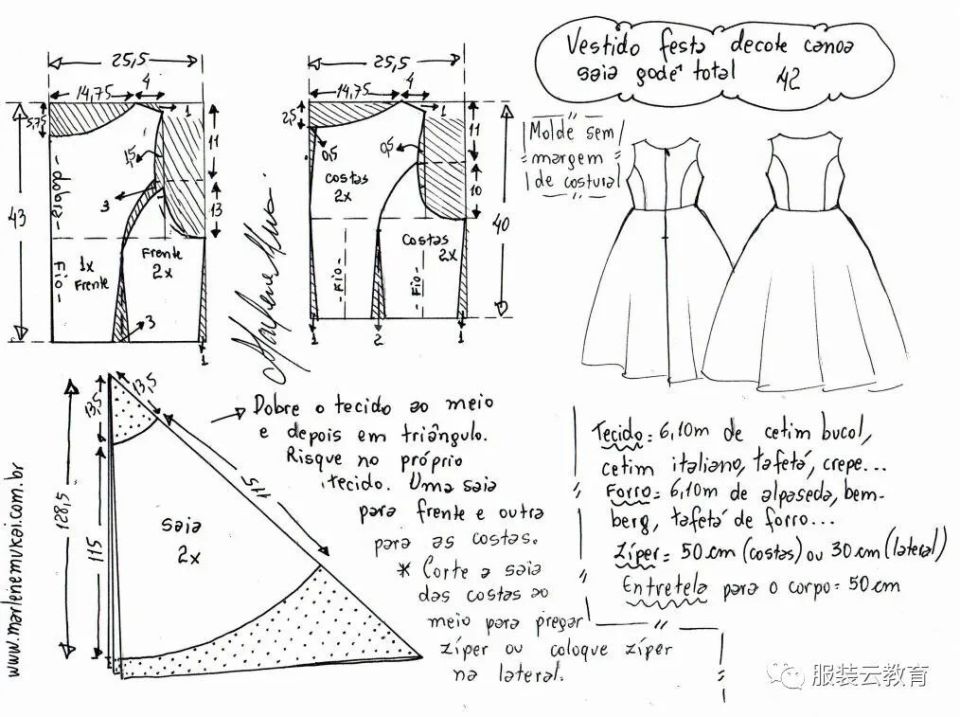 Vestido festa decote canoa
saia godê total 42
25,5
14,75
4
1
5,75
11
1,5
3
13
43
dobra
Fio
1x
Frente
Frente
2x
3
1
25,5
14,75
4
1
2,5
0,5
0,5
11
10
costas
2x
40
Costas
2x
Fio
Fio
1
2
1
Molde sem
margem
de costura
13,5
13,5
128,5
115
115
saia
2x
www.marlenemukai.com.br
Dobre o tecido ao meio
e depois em triângulo.
Risque no próprio
tecido. Uma saia
para frente e outra
para as costas.
* Corte a saia
das costas ao
meio para pregar
zíper ou coloque zíper
na lateral.
Tecido = 6,10m de cetim bucol,
cetim italiano, tafetá, crepe...
Forro = 6,10m de alpaseda, bem-
berg, tafetá de forro...
Zíper = 50cm (costas) ou 30cm (lateral)
Entretela para o corpo = 50cm
Marlene Mukai
服装云教育